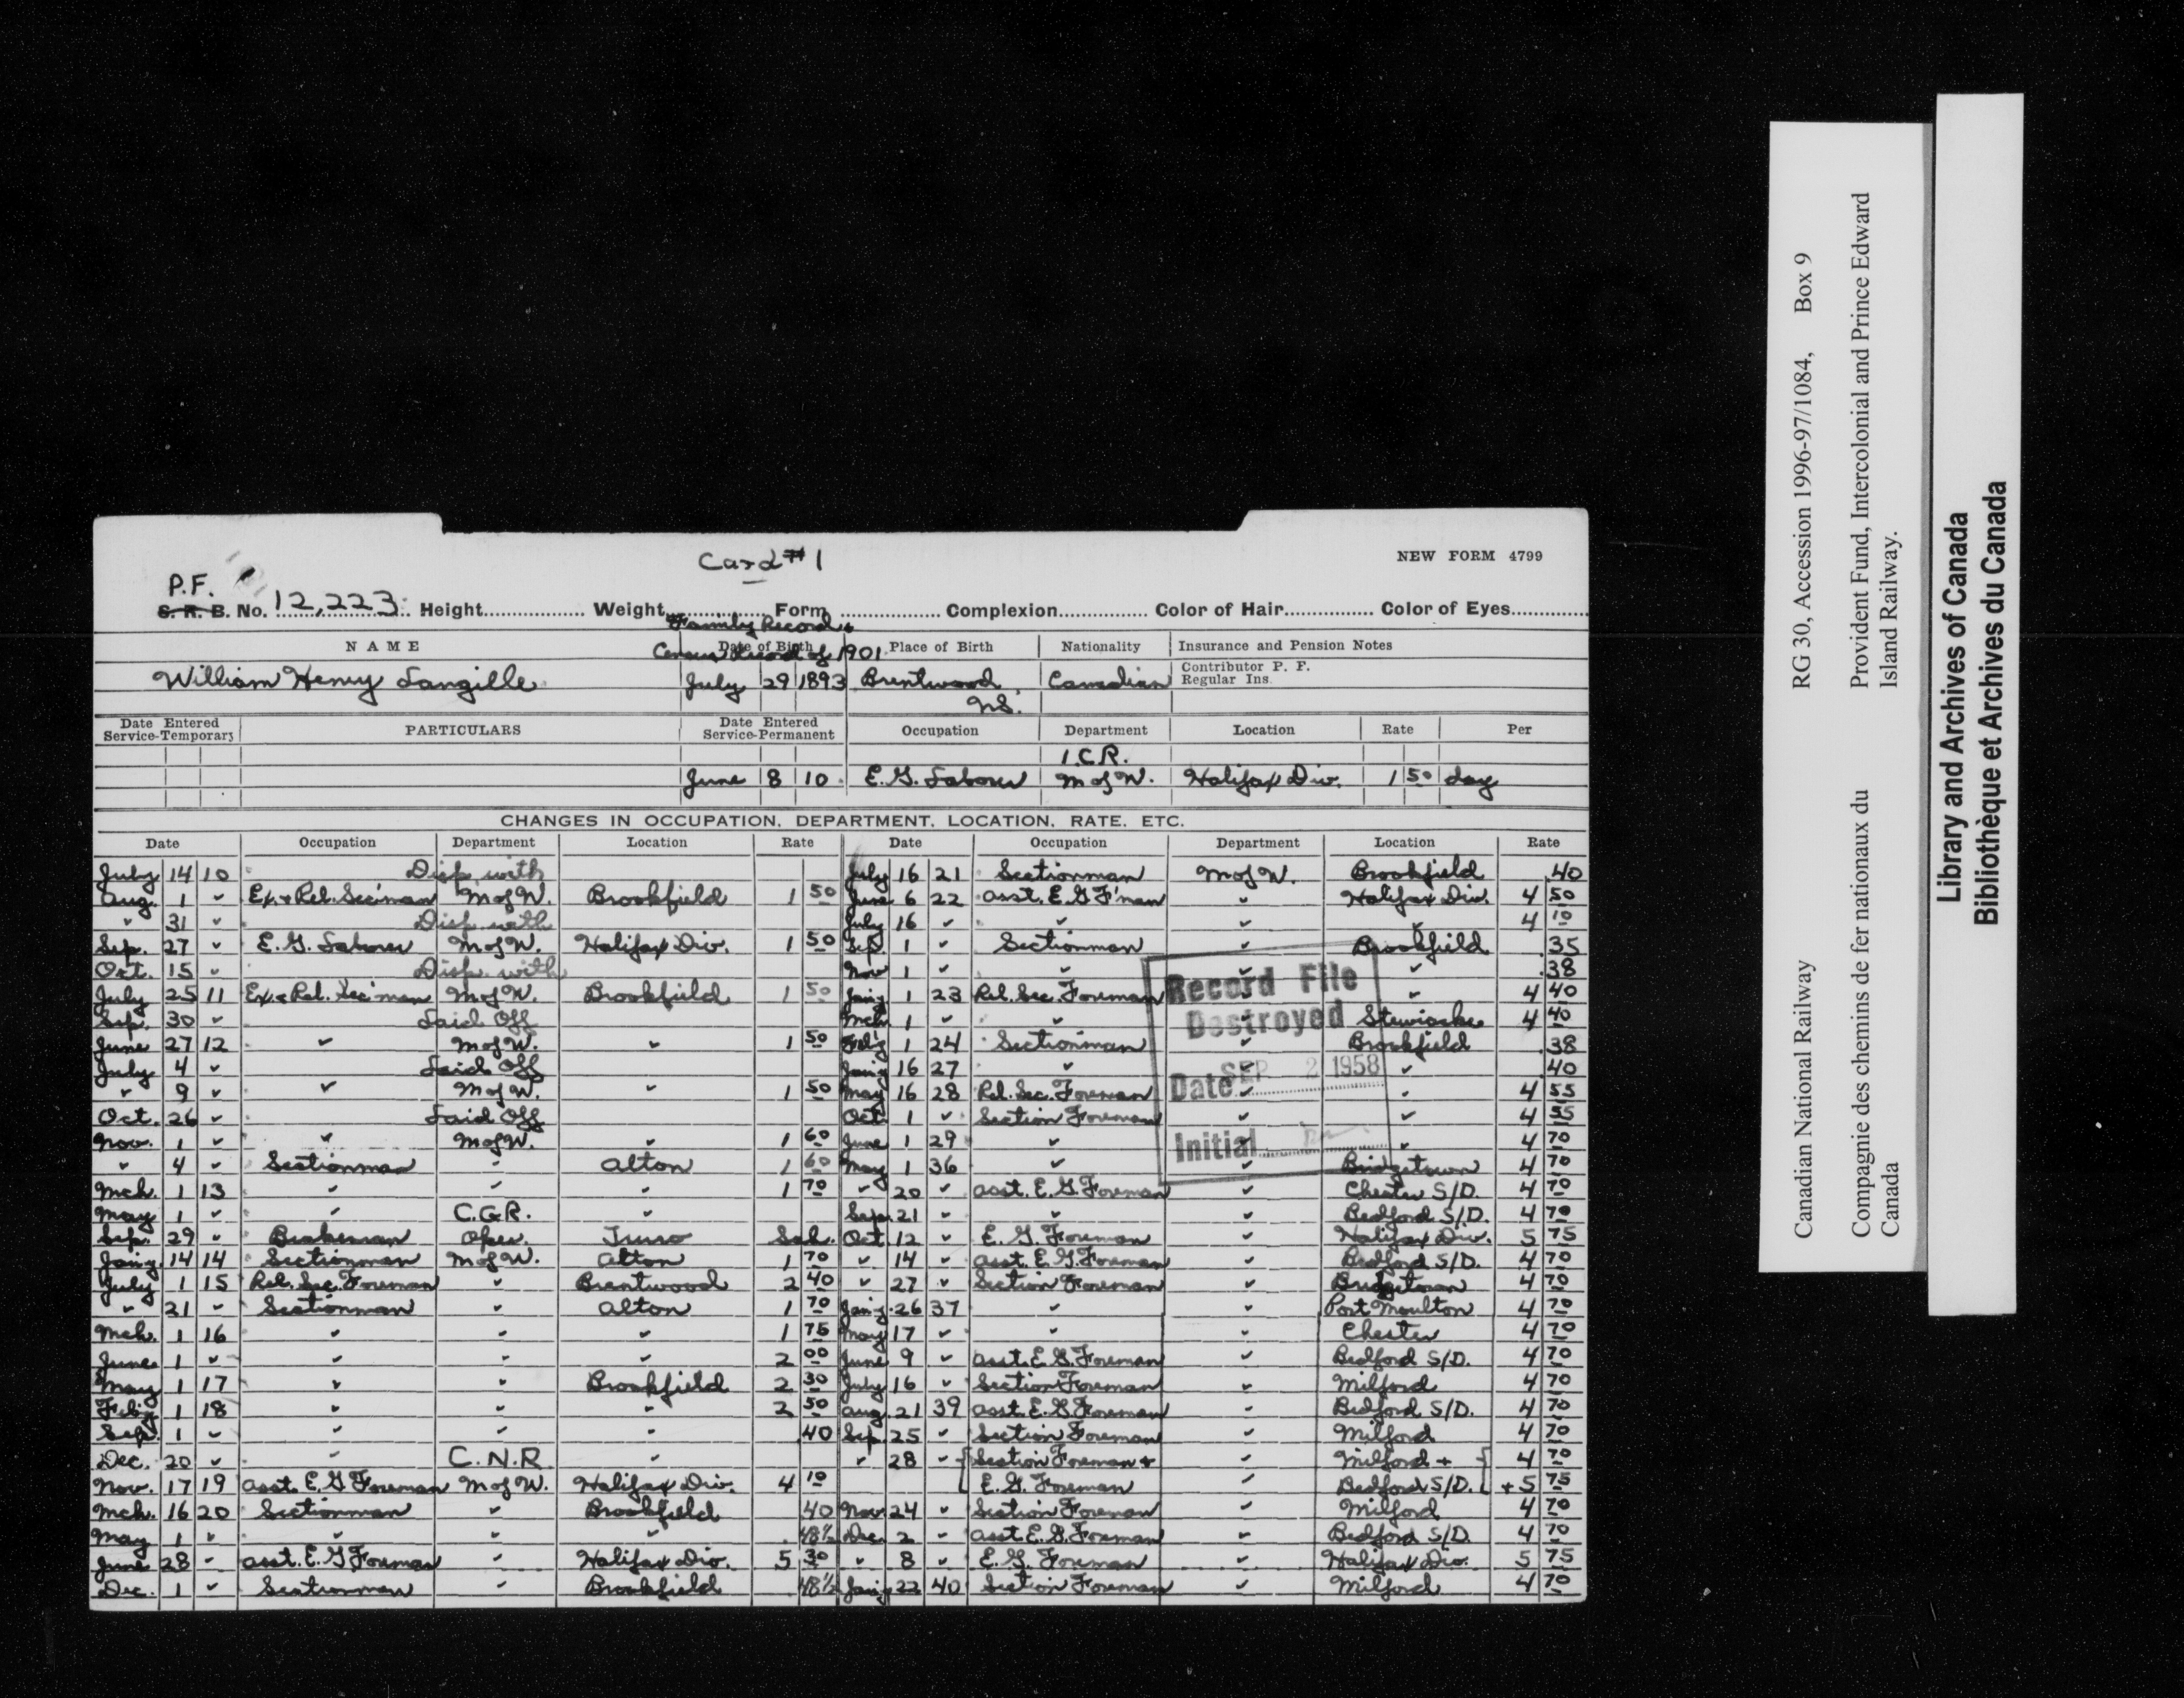 Card #1
NEW FORM 4799
P.F.
S. R. B. No. 12,223 Height Weight Form Complexion Color of Hair Color of Eyes
Family Record &
Census Record of 1901
NAME Date of Birth Place of Birth Nationality Insurance and Pension Notes
Contributor P. F.
William Henry Langille July 29 1893 Brentwood, Canadian Regular Ins.
N.S.
Date Entered Service-Temporary PARTICULARS Date Entered Service-Permanent Occupation Department Location Rate Per
I.C.R.
June 8 10 E.G. Laborer M of W. Halifax Div. 1 50 day
CHANGES IN OCCUPATION, DEPARTMENT, LOCATION, RATE, ETC.
Date Occupation Department Location Rate Date Occupation Department Location Rate
July 14 10 Disp with
Aug. 1 " Ex. & Rel. Sec'man M of W. Brookfield 1 50
" 31 " Disp. with
Sep. 27 " E.G. Laborer M of W. Halifax Div. 1 50
Oct. 15 " Disp. with
July 25 11 Ex. & Rel. Sec'man M of W. Brookfield 1 50
Sep. 30 " Laid Off
June 27 12 " M of W. " 1 50
July 4 " Laid Off
" 9 " " M of W. " 1 50
Oct. 26 " Laid Off
Nov. 1 " " M of W. " 1 60
" 4 " Sectionman " Alton 1 60
Mch. 1 13 " " " 1 70
May 1 " " C.G.R. "
Sep. 29 " Brakeman Oper. Truro Sch.
Jan'y. 14 14 Sectionman M of W. Alton 1 70
July 1 15 Rel. Sec. Foreman " Brentwood 2 40
" 21 " Sectionman " Alton 1 70
Mch. 1 16 " " " 1 75
June 1 " " " " 2 00
May 1 17 " " Brookfield 2 30
Feb'y 1 18 " " " 2 50
Sep. 1 " " " " .40
Dec. 20 " " C.N.R. "
Nov. 17 19 Asst. E.G. Foreman M of W. Halifax Div. 4 10
Mch. 16 20 Sectionman " Brookfield .40
May 1 " " " " .48½
June 28 " Asst. E.G. Foreman " Halifax Div. 5 30
Dec. 1 " Sectionman " Brookfield .48½
July 16 21 Sectionman M of W. Brookfield .40
June 6 22 Asst. E.G. F'man " Halifax Div. 4 50
July 16 " " " " 4 10
Sep. 1 " Sectionman " Brookfield .35
Nov 1 " " " " .38
Jan'y 1 23 Rel. Sec. Foreman " " 4 40
Mch 1 " " " Stewiacke 4 40
Feb'y 1 24 Sectionman " Brookfield .38
Jan'y 16 27 " " " .40
May 16 28 Rel. Sec. Foreman " " 4 55
Oct. 1 " Section Foreman " " 4 55
June 1 29 " " " 4 70
May 1 36 " " Bridgetown 4 70
" 20 " Asst. E.G. Foreman " Chester S/D. 4 70
Sep. 21 " " " Bedford S/D. 4 70
Oct. 12 " E.G. Foreman " Halifax Div. 5 75
" 14 " Asst. E.G. Foreman " Bedford S/D. 4 70
" 27 " Section Foreman " Bridgetown 4 70
Jan'y. 26 37 " " Port Moulton 4 70
May 17 " " " Chester 4 70
June 9 " Asst. E.G. Foreman " Bedford S/D. 4 70
July 16 " Section Foreman " Milford 4 70
Aug. 21 39 Asst. E.G. Foreman " Bedford S/D. 4 70
Sep. 25 " Section Foreman " Milford 4 70
" 28 " Section Foreman + " Milford + 4 70
E.G. Foreman " Bedford S/D. + 5 75
Nov. 24 " Section Foreman " Milford 4 70
Dec. 2 " Asst. E.G. Foreman " Bedford S/D. 4 70
" 8 " E.G. Foreman " Halifax Div. 5 75
Jan'y 22 40 Section Foreman " Milford 4 70
Record File
Destroyed
Date SEP 2 1958
Initial
RG 30, Accession 1996-97/1084, Box 9
Provident Fund, Intercolonial and Prince Edward
Island Railway.
Canadian National Railway
Compagnie des chemins de fer nationaux du
Canada
Library and Archives of Canada
Bibliothèque et Archives du Canada